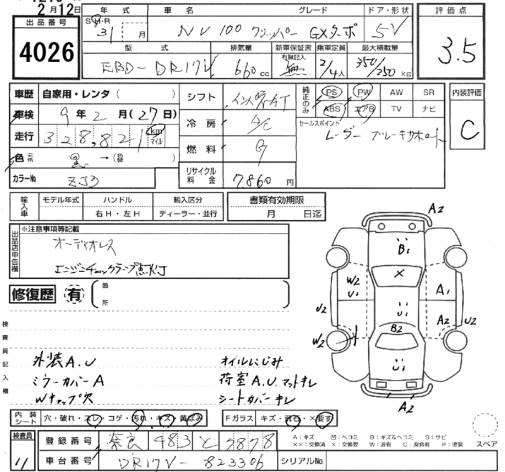 2月12日
出品番号 4026
年式 31 月 車名 NV100 クリッパー グレード GXターボ ドア・形状 5V
型式 EBD-DR17V 排気量 660cc 新車保証書 有無記入 無 乗車定員 2/4人 最大積載量 350/250kg
評価点 3.5
車歴 自家用・レンタ
シフト インパネAT
純正のみ PS PW AW SR
ABS エアB TV ナビ
内装評価 C
車検 9年2月(27日)
冷房 A/C
セールスポイント
レーダーブレーキサポート
走行 328,821 km マイル
燃料 G
色 黒
リサイクル料金 7860円
カラーNo ZJ3
輸入車 モデル年式 ハンドル 輸入区分 書類有効期限
右H・左H ディーラー・並行 月 日迄
出品店申告欄 ※注意事項等記載
オーディオレス
エンジンチェックランプ点灯
修復歴 有 箇所
検査員記入欄
外装A.U オイルにじみ
ミラーカバーA 荷室A.U マットキレ
Wチップ穴 シートカバーキレ
A2
B1
X
W2
U1
A1
U2
A2
U2
W2
B2
U1
A2
内装シート 穴・破れ・スレ・コゲ・汚れ・キズ・
Fガラス キズ・
スペア
検査員 11
登録番号 奈良 483 と 9878
車台番号 DR17V-823306 シリアルNo.
A:キズ U:凹ミ B:キズ&ヘコミ S:サビ